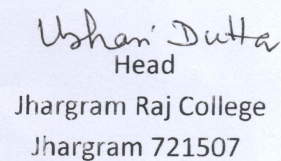 Ushasi Dutta
Head
Jhargram Raj College
Jhargram 721507